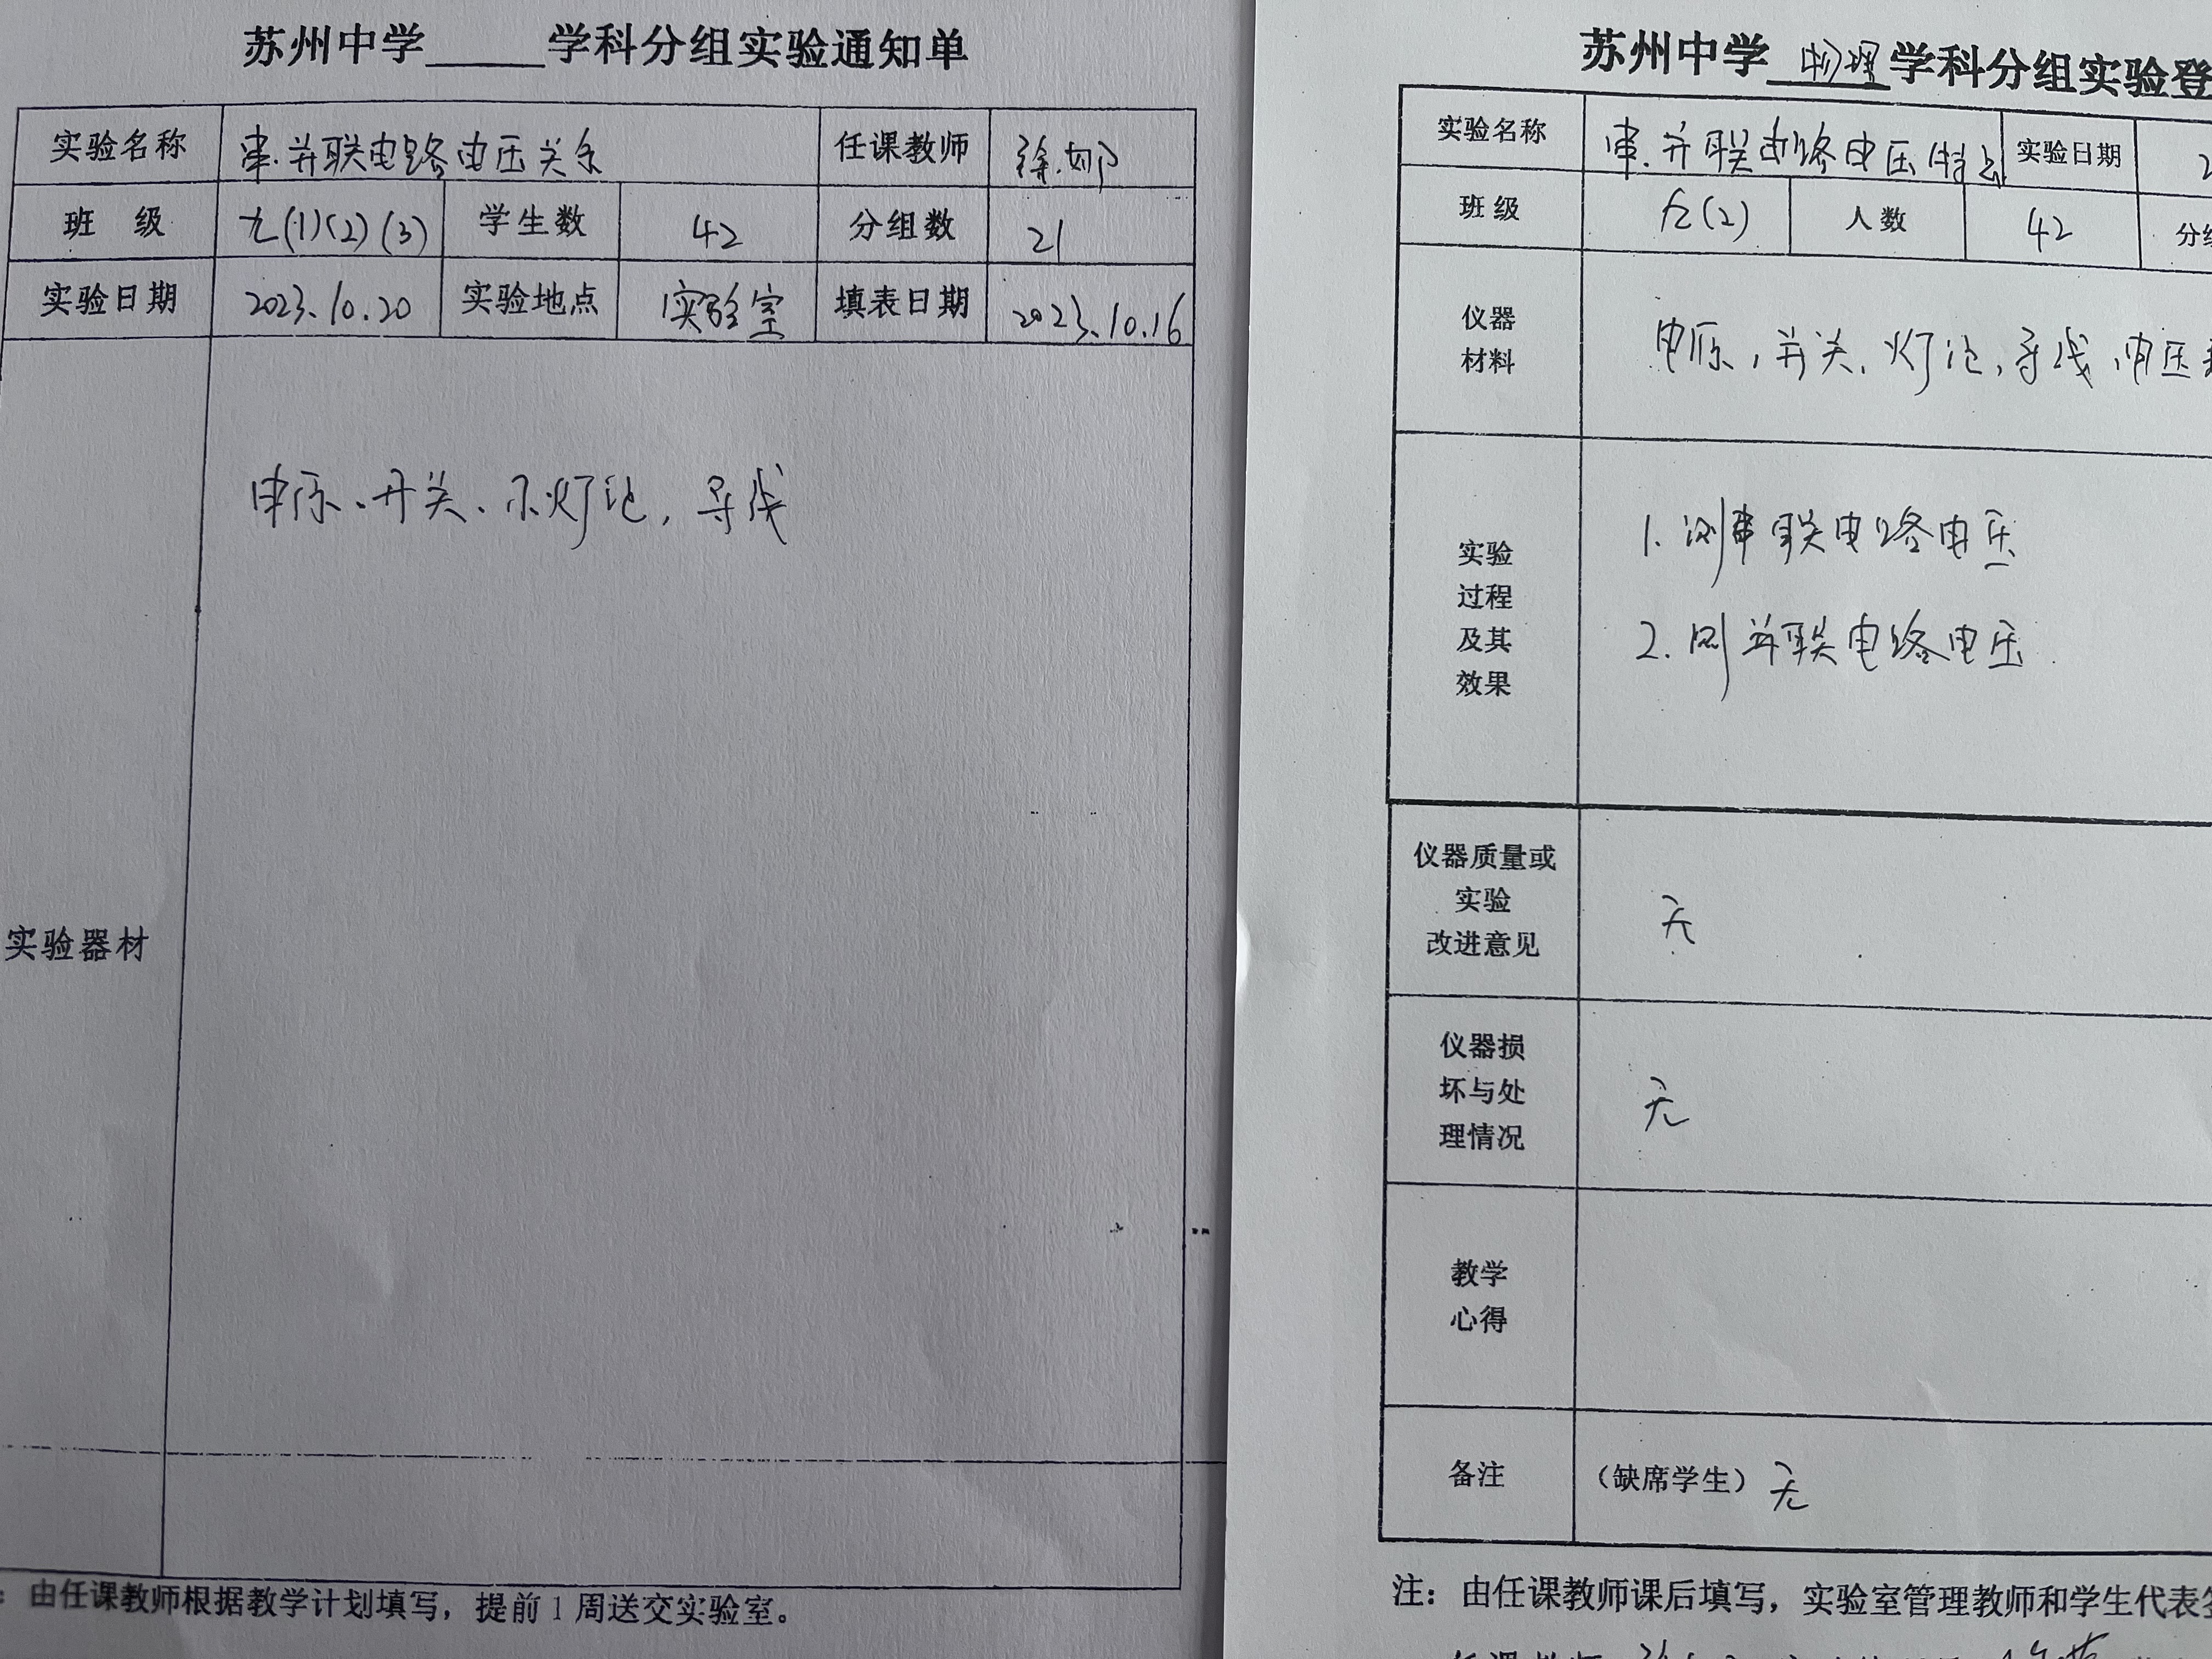 苏州中学______学科分组实验通知单
实验名称 串.并联电路电压关系 任课教师 徐
班 级 九(1)(2)(3) 学生数 42 分组数 21
实验日期 2023.10.20 实验地点 实验室 填表日期 2023.10.16
实验器材
电源、开关、小灯泡，导线
：由任课教师根据教学计划填写，提前1周送交实验室。
苏州中学 物理 学科分组实验登
实验名称 串.并联电路电压特点 实验日期 2
班级 九(2) 人数 42 分组
仪器
材料
电源，开关、灯泡，导线，电压
实验
过程
及其
效果
1. 测串联电路电压
2. 测并联电路电压.
仪器质量或
实验
改进意见
无
仪器损
坏与处
理情况
无
教学
心得
备注 （缺席学生）无
注：由任课教师课后填写，实验室管理教师和学生代表签
任课教师